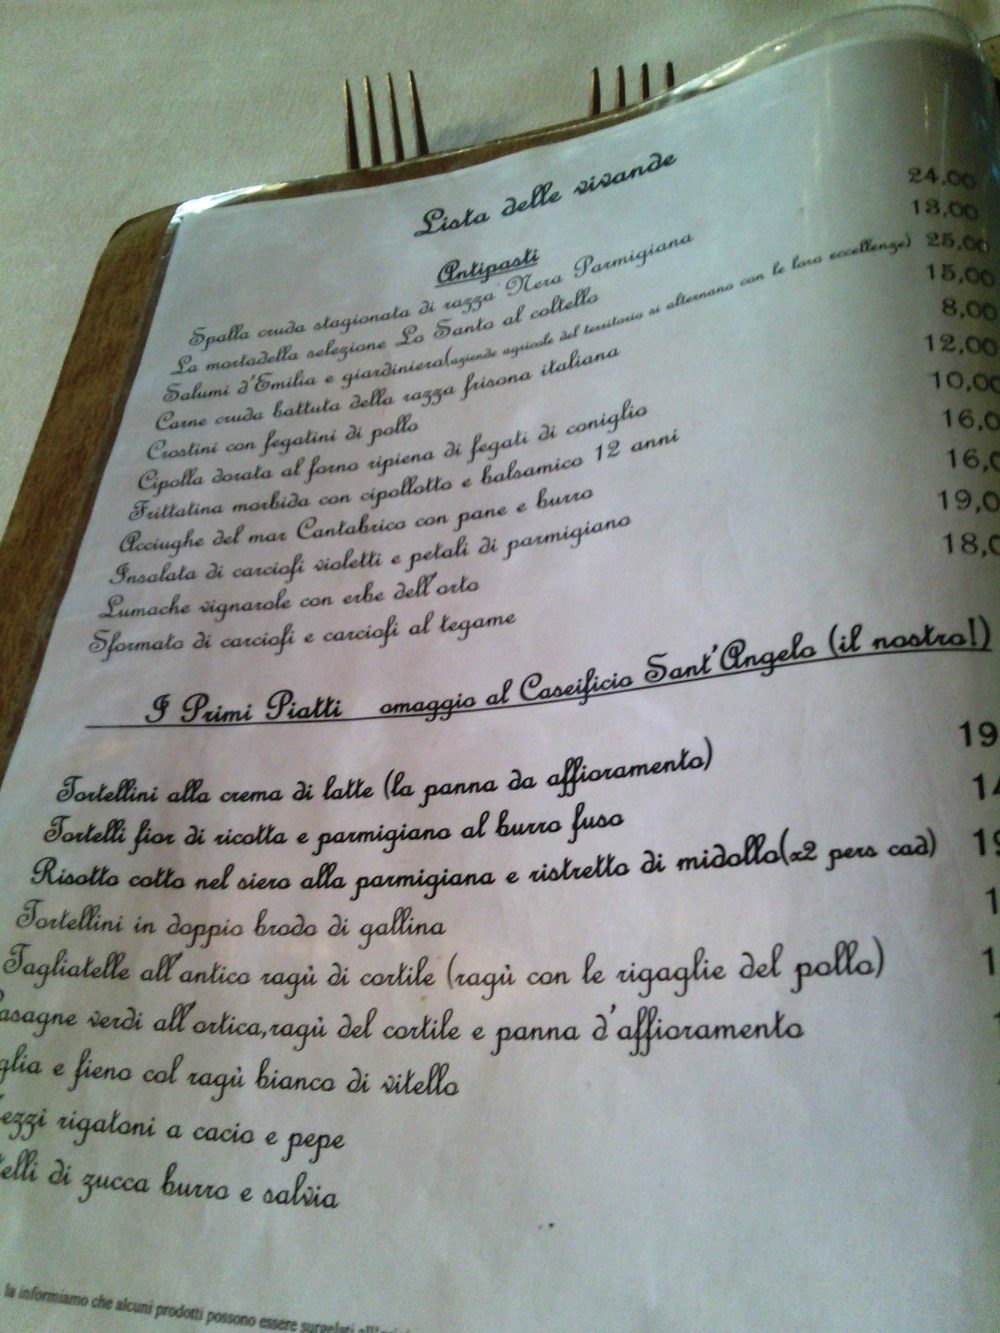 Lista delle vivande
Antipasti
Spalla cruda stagionata di razza Nera Parmigiana 24.00
La mortadella selezione Lo Santo al coltello 13,00
Salumi d'Emilia e giardiniera(aziende agricole del territorio si alternano con le loro eccellenze) 25,00
Carne cruda battuta della razza frisona italiana 15,00
Crostini con fegatini di pollo 8,00
Cipolla dorata al forno ripiena di fegati di coniglio 12,00
Frittatina morbida con cipollotto e balsamico 12 anni 10,00
Acciughe del mar Cantabrico con pane e burro 16,0
Insalata di carciofi violetti e petali di parmigiano 16,0
Lumache vignarole con erbe dell'orto 19,0
Sformato di carciofi e carciofi al tegame 18,0
I Primi Piatti omaggio al Caseificio Sant'Angelo (il nostro!)
Tortellini alla crema di latte (la panna da affioramento) 19
Tortelli fior di ricotta e parmigiano al burro fuso 14
Risotto cotto nel siero alla parmigiana e ristretto di midollo(x2 pers cad) 19
Tortellini in doppio brodo di gallina 1
Tagliatelle all'antico ragù di cortile (ragù con le rigaglie del pollo) 1
asagne verdi all'ortica,ragù del cortile e panna d'affioramento
glia e fieno col ragù bianco di vitello
ezzi rigatoni a cacio e pepe
telli di zucca burro e salvia
la informiamo che alcuni prodotti possono essere surgelati